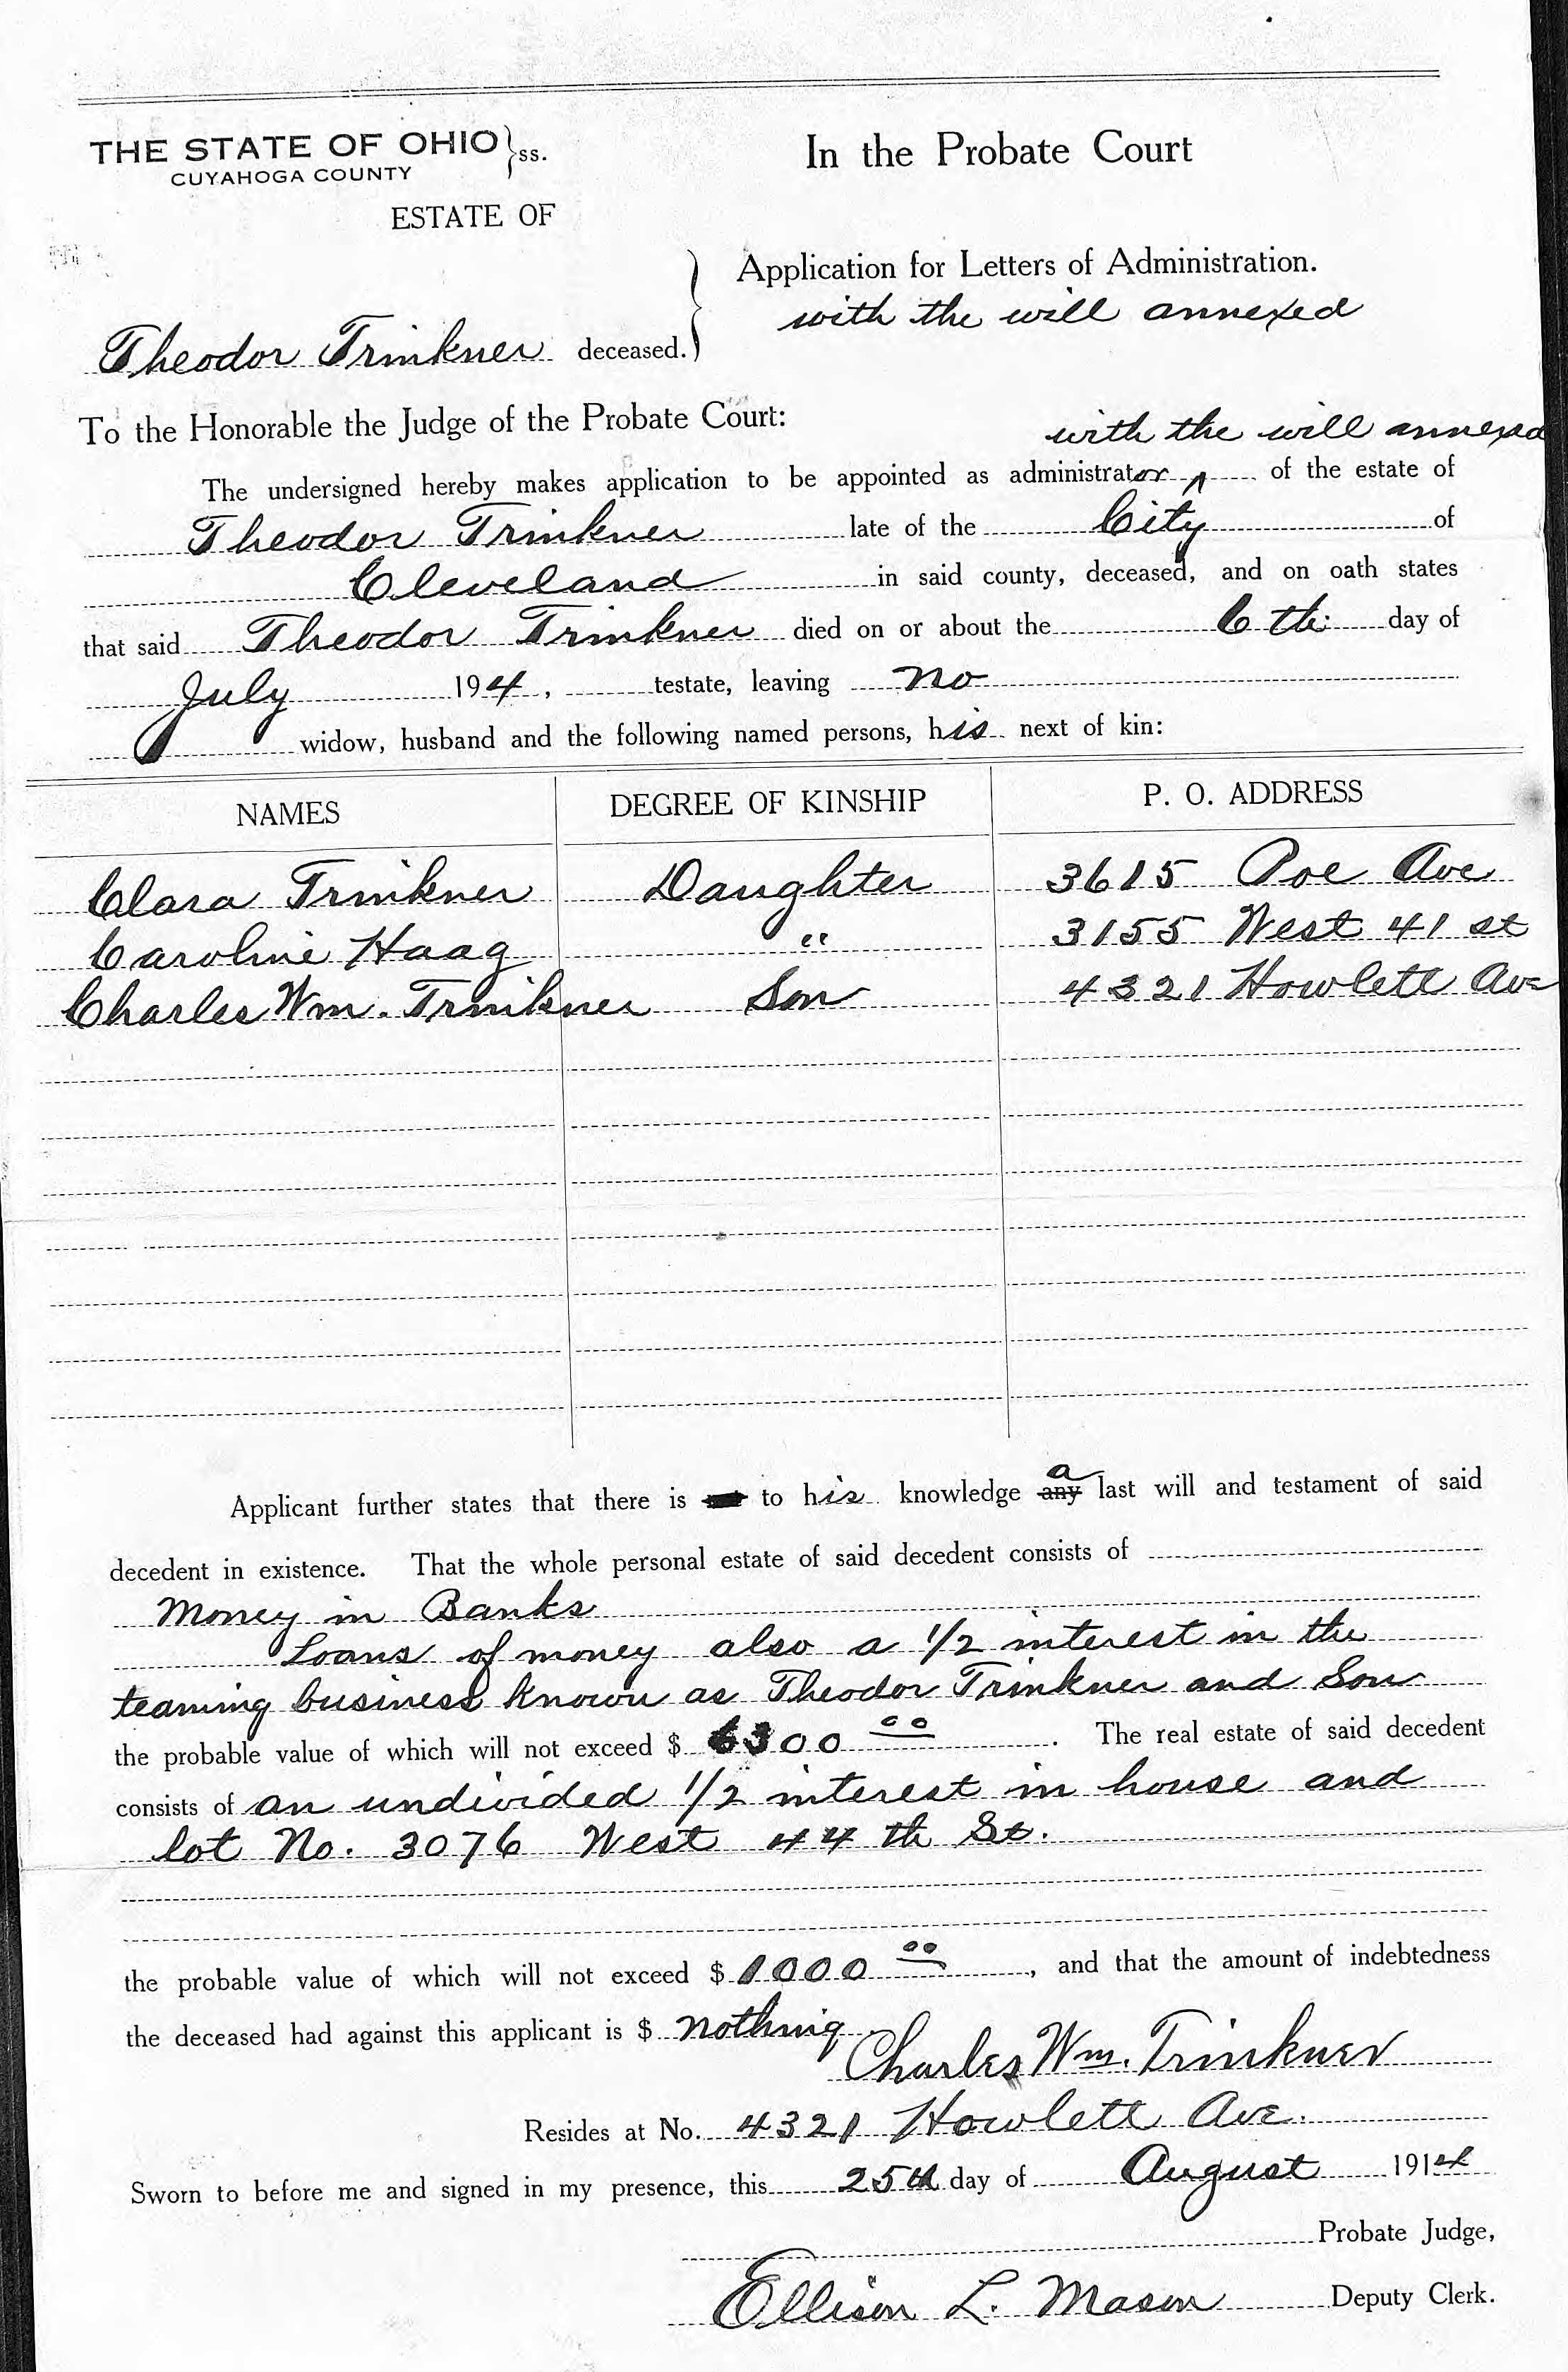 THE STATE OF OHIO } ss.
CUYAHOGA COUNTY
In the Probate Court
ESTATE OF
Application for Letters of Administration.
with the will annexed
Theodor Trinkner deceased.
To the Honorable the Judge of the Probate Court:
with the will annexed
The undersigned hereby makes application to be appointed as administrator ^ of the estate of
Theodor Trinkner late of the City of
Cleveland in said county, deceased, and on oath states
that said Theodor Trinkner died on or about the 6th day of
July 194, testate, leaving no
widow, husband and the following named persons, his next of kin:
NAMES DEGREE OF KINSHIP P. O. ADDRESS
Clara Trinkner Daughter 3615 Poe Ave
Caroline Haag " 3155 West 41 st
Charles Wm. Trinkner Son 4321 Howlett Ave
a
Applicant further states that there is to his knowledge any last will and testament of said
decedent in existence. That the whole personal estate of said decedent consists of
Money in Banks
Loans of money also a 1/2 interest in the
teaming business known as Theodor Trinkner and Son
the probable value of which will not exceed $ 6300 00. The real estate of said decedent
consists of an undivided 1/2 interest in house and
lot No. 3076 West 44th St.
the probable value of which will not exceed $ 1000 00, and that the amount of indebtedness
the deceased had against this applicant is $ nothing
Charles Wm. Trinkner
Resides at No. 4321 Howlett Ave.
Sworn to before me and signed in my presence, this 25th day of August 1914
Probate Judge,
Ellison L. Mason Deputy Clerk.